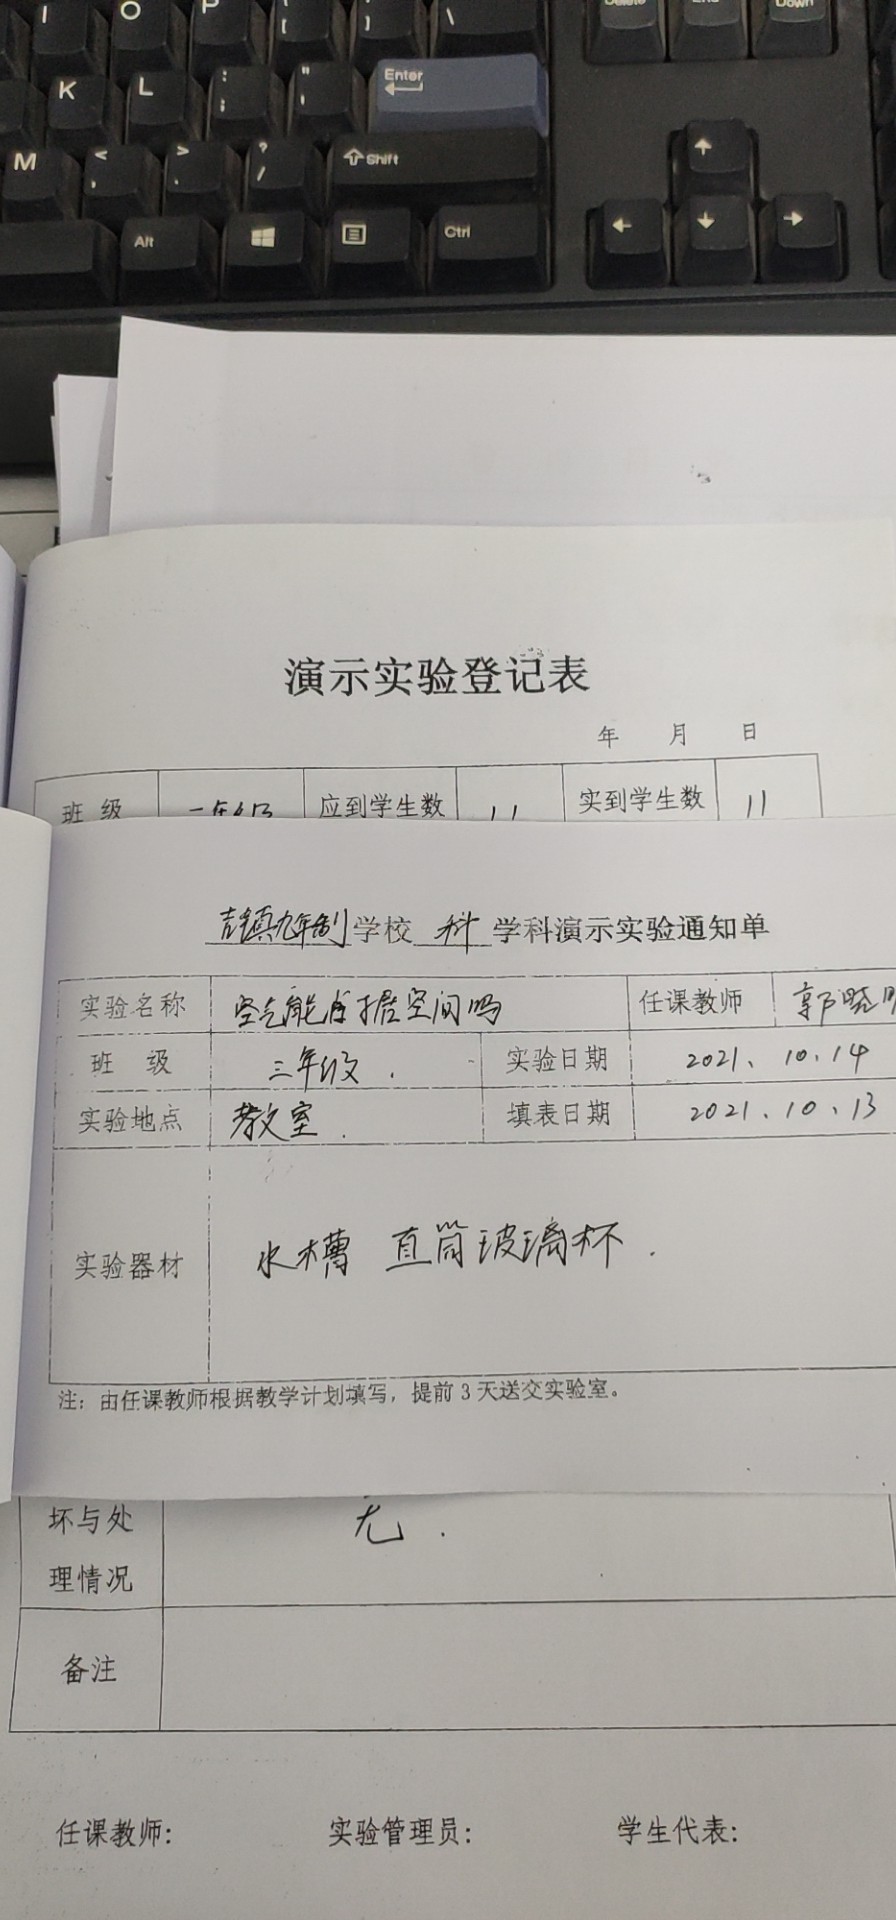 I O P { [ } ] \
Delete End Down
K L : ; " ' Enter
M < , > . ? / Shift
Alt Ctrl
演示实验登记表
年 月 日
班 级 应到学生数 11 实到学生数 11
镇九年制学校 科 学科演示实验通知单
实验名称 空气能占据空间吗 任课教师 郭晓明
班 级 三年级. 实验日期 2021、10、14
实验地点 教室. 填表日期 2021、10、13
实验器材 水槽 直筒玻璃杯.
注：由任课教师根据教学计划填写，提前 3 天送交实验室。
坏与处 无.
理情况
备注
任课教师: 实验管理员: 学生代表: